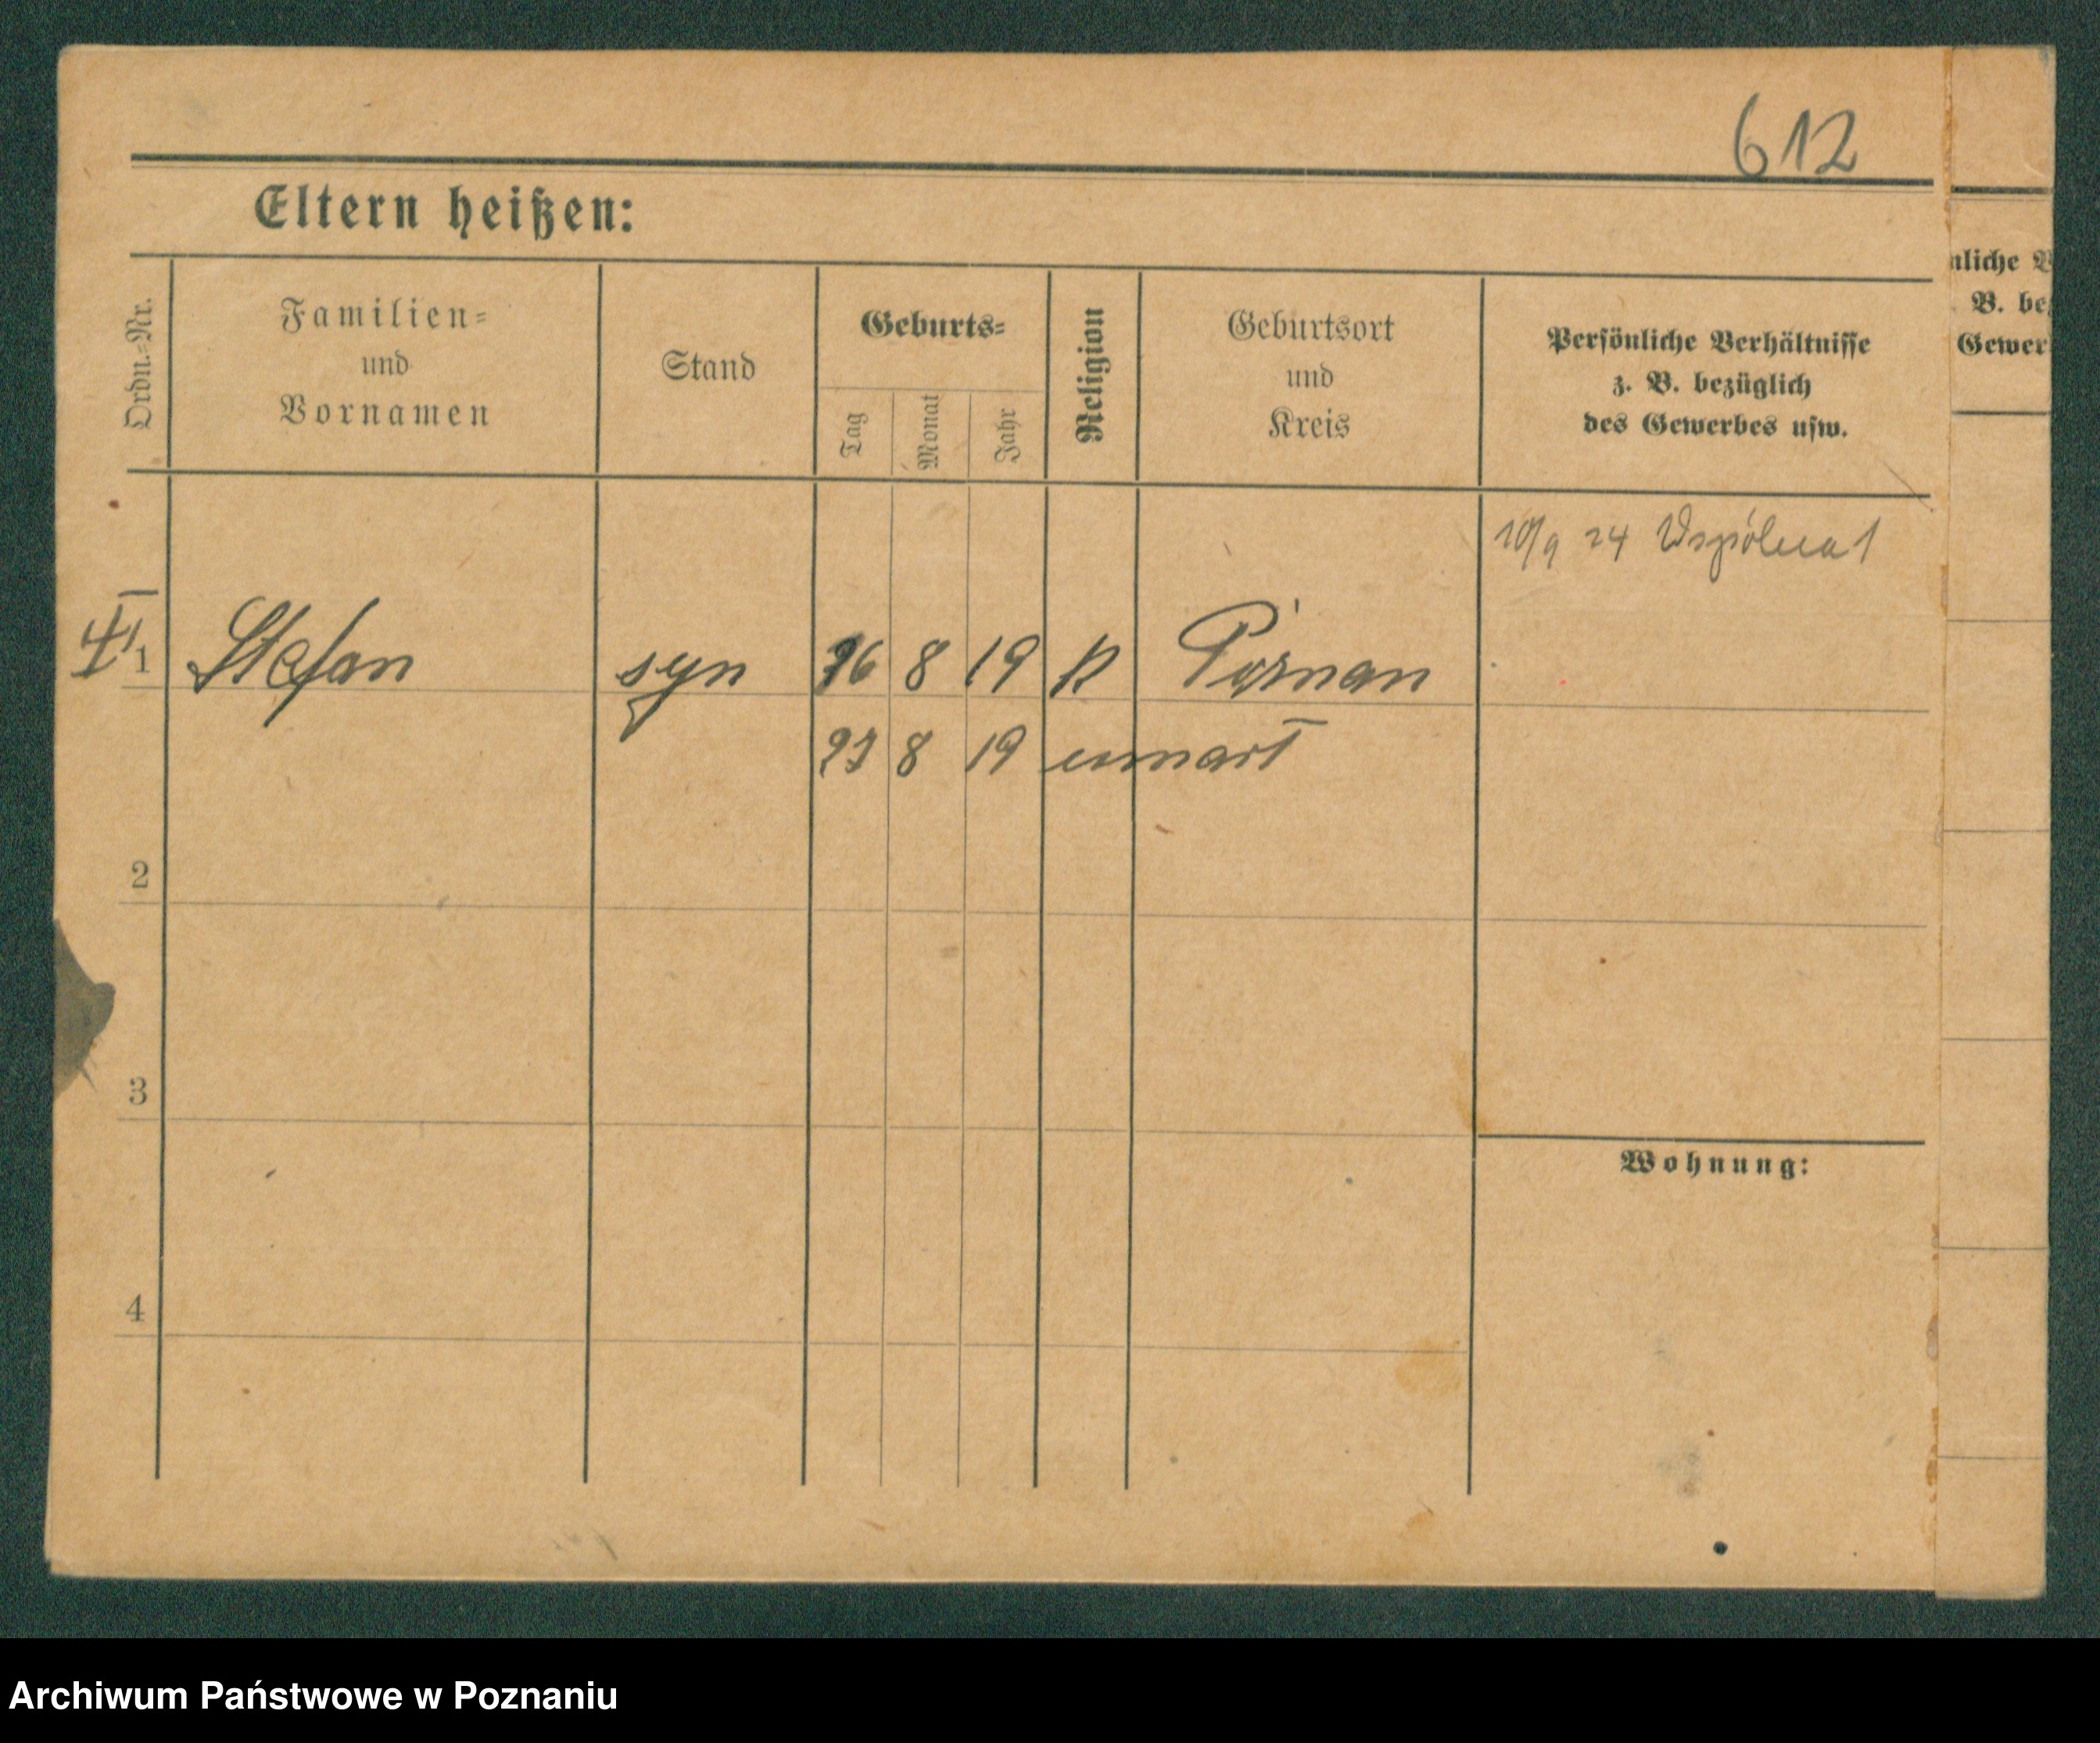 612
Eltern heißen:
Ordn.=Nr.
Familien=
und
Vornamen
Stand
Geburts=
Tag
Monat
Jahr
Religion
Geburtsort
und
Kreis
Persönliche Verhältnisse
z. B. bezüglich
des Gewerbes usw.
nliche V
B. be
Gewer
10/9 24 Wspólna 1
1 Stefan syn 26 8 19 K Poznan
27 8 19 umarł
2
3
4
Wohnung:
Archiwum Państwowe w Poznaniu